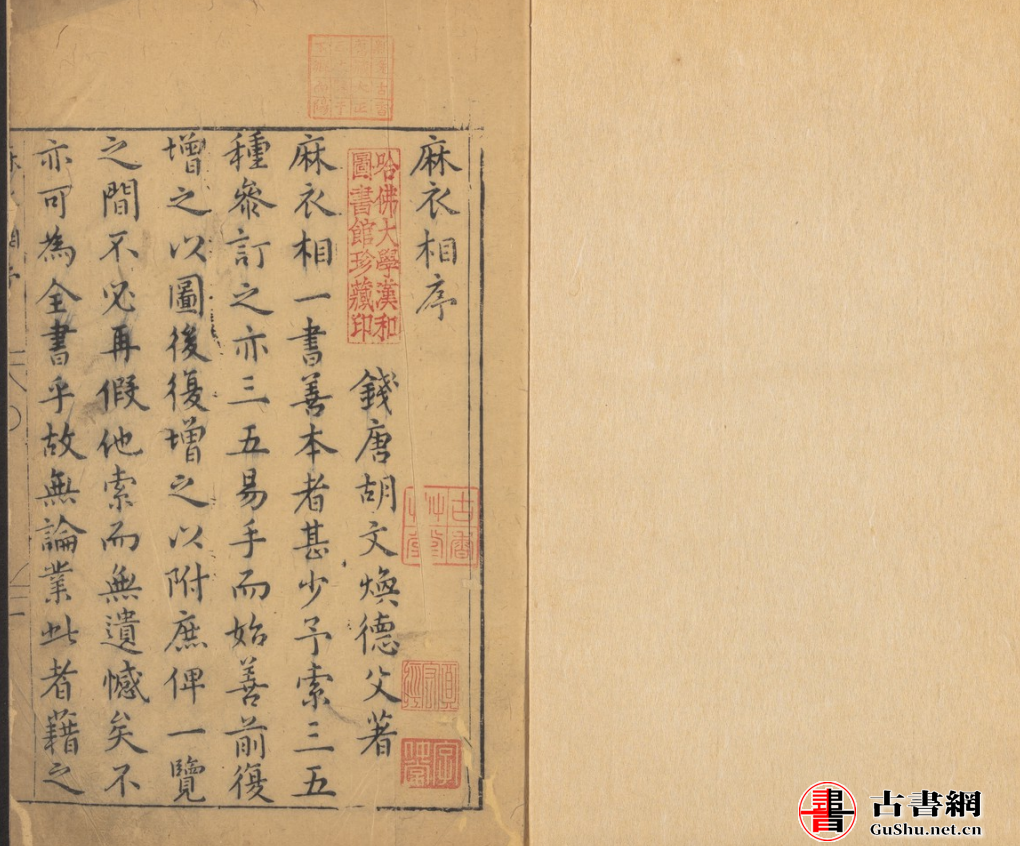 麻衣相序
錢唐胡文煥德父著
麻衣相一書善本者甚少予索三五
種參訂之亦三五易手而始善前復
增之以圖後復增之以附庶俾一覽
之間不必再假他索而無遺憾矣不
亦可為全書乎故無論業此者藉之
哈佛大學漢和
圖書館珍藏印
古書網
GuShu.net.cn